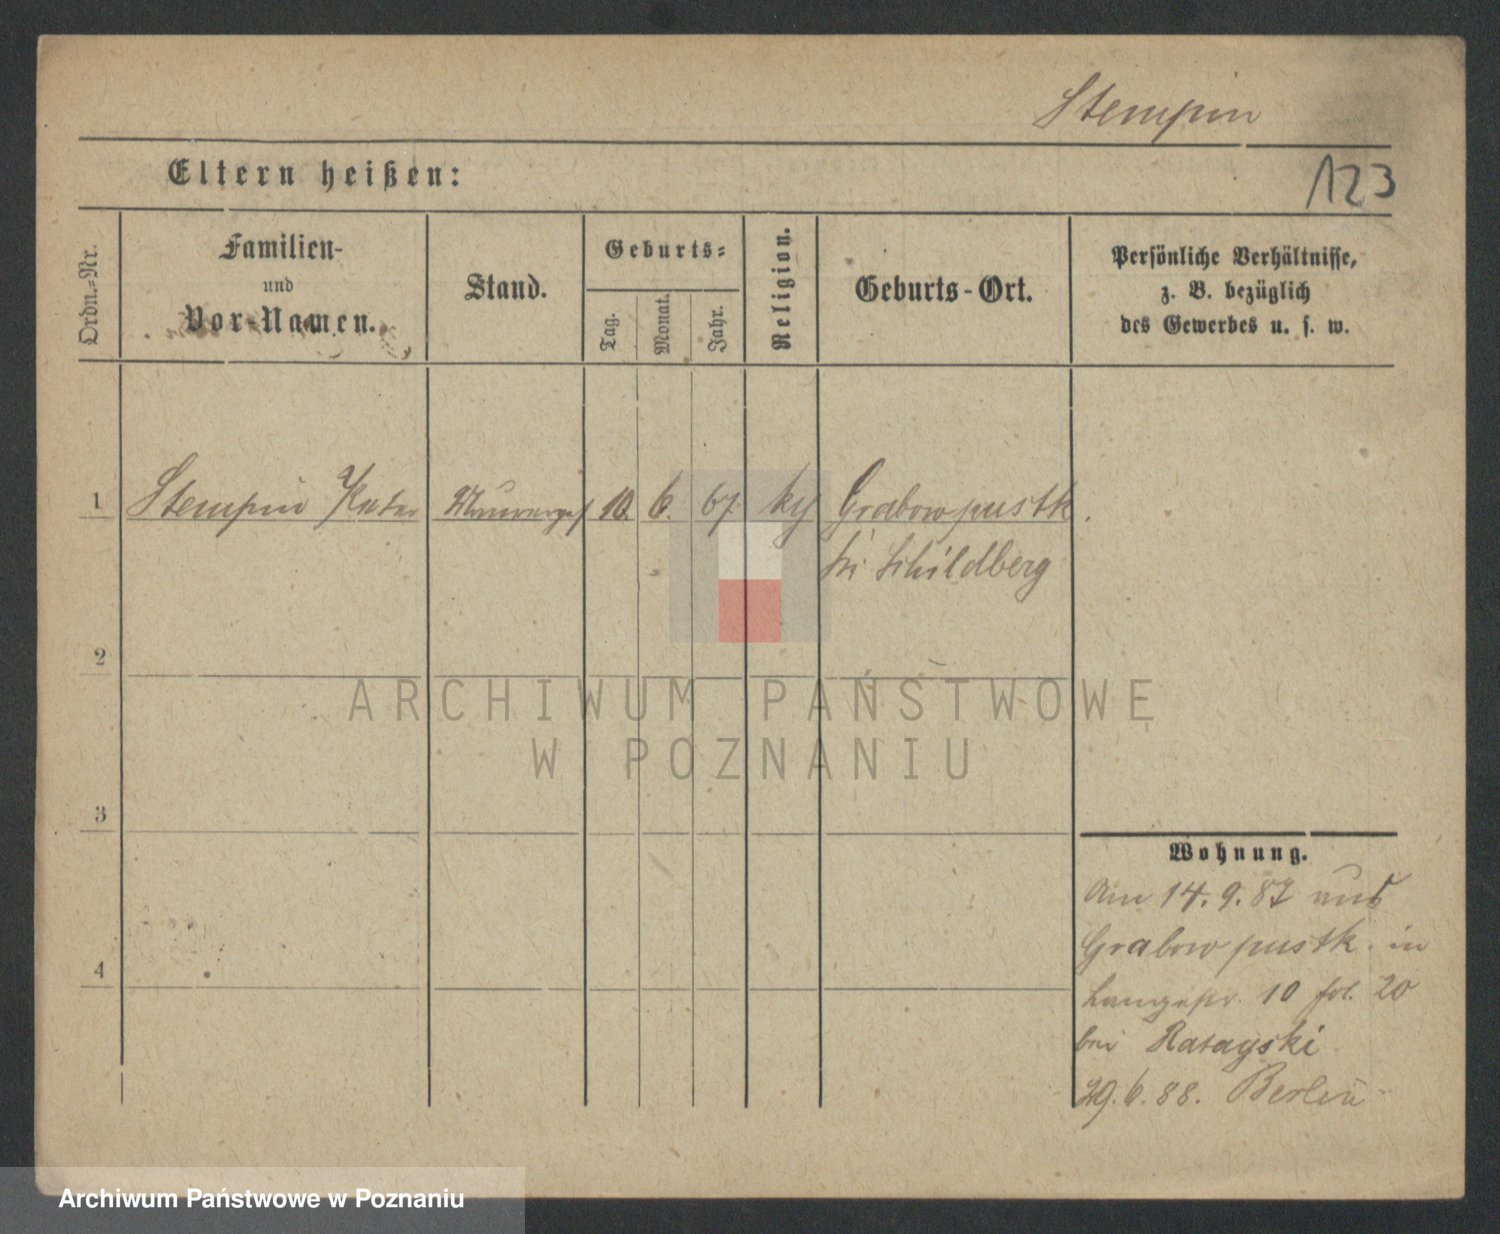 Stempin
123
Eltern heißen:
Ordn.-Nr.
Familien-
und
Vor-Namen.
Stand.
Geburts-
Tag.
Monat.
Jahr.
Religion.
Geburts-Ort.
Persönliche Verhältnisse,
z. B. bezüglich
des Gewerbes u. s. w.
1 Stempin Peter 10. 6. 67. Grabow pustk.
Schildberg
2
ARCHIWUM PAŃSTWOWE
W POZNANIU
3
Wohnung.
Am 14. 9. 87 aus
Grabow pustk. in
4
10 fol. 20
bei Ratayski
29. 6. 88. Berlin
Archiwum Państwowe w Poznaniu